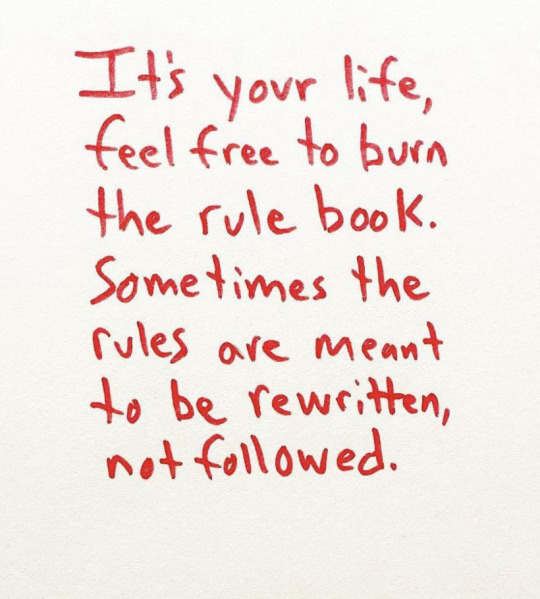 It's your life,
feel free to burn
the rule book.
Sometimes the
rules are meant
to be rewritten,
not followed.